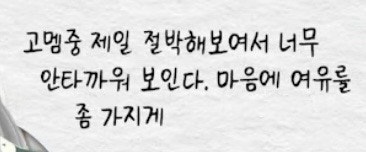 고멤중 제일 절박해보여서 너무
안타까워 보인다. 마음에 여유를
좀 가지게